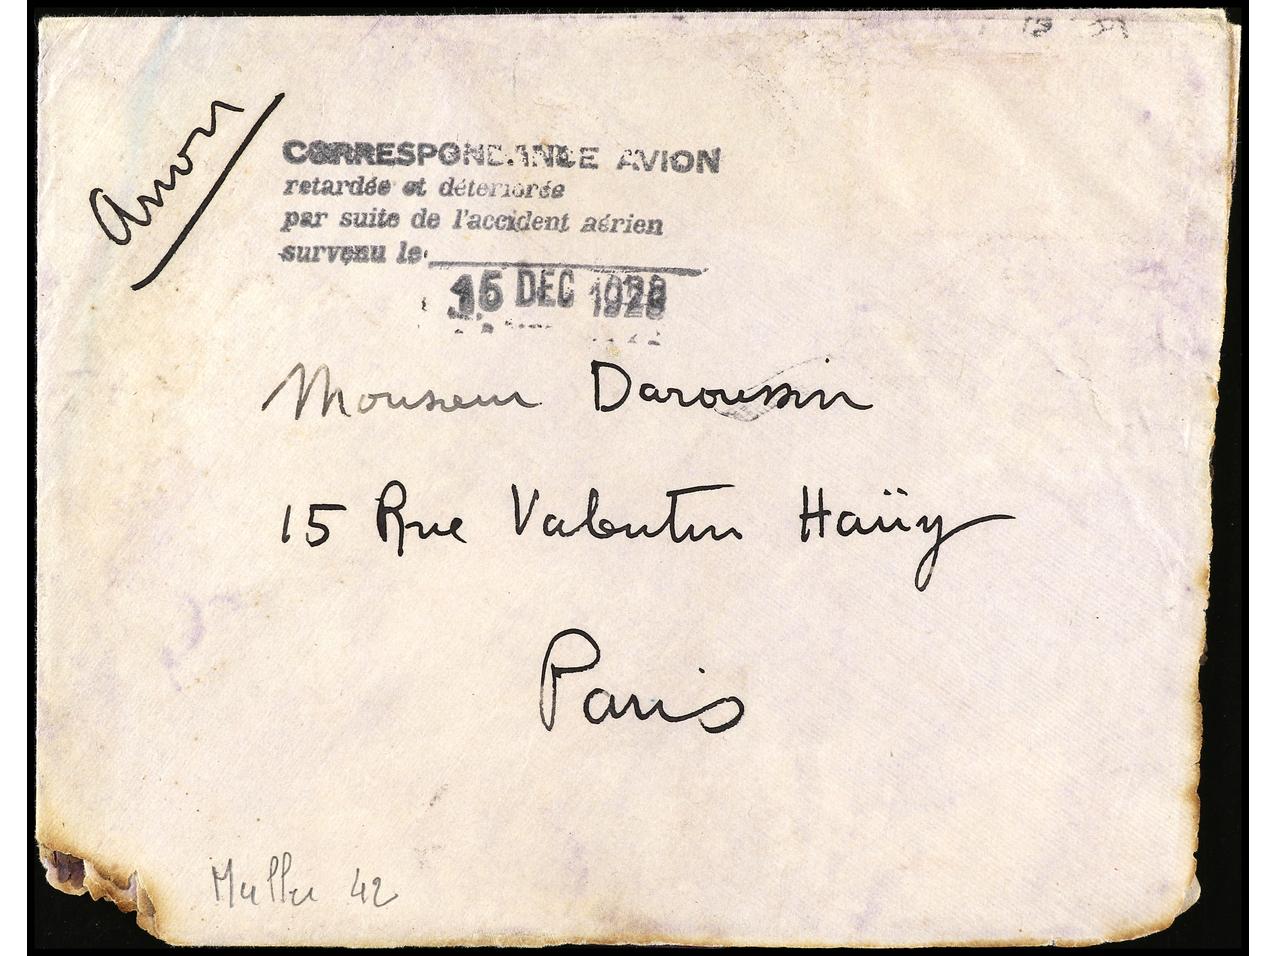 Avion
CORRESPONDANCE AVION
retardée et détériorée
par suite de l'accident aérien
survenu le
15 DEC 1928
Monsieur Daroussin
15 Rue Valentin Haüy
Paris
Muller 42